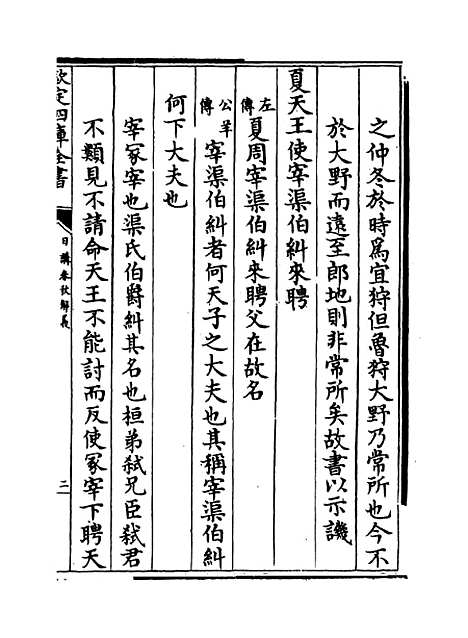 之仲冬於時爲宜狩但魯狩大野乃常所也今不
於大野而遠至郎地則非常所矣故書以示譏
夏天王使宰渠伯糾來聘
左傳夏周宰渠伯糾來聘父在故名
公羊傳宰渠伯糾者何天子之大夫也其稱宰渠伯糾
何下大夫也
宰冢宰也渠氏伯爵糾其名也桓弟弑兄臣弑君
不覿見不請命天王不能討而反使冢宰下聘天
欽定四庫全書
日講春秋解義
二